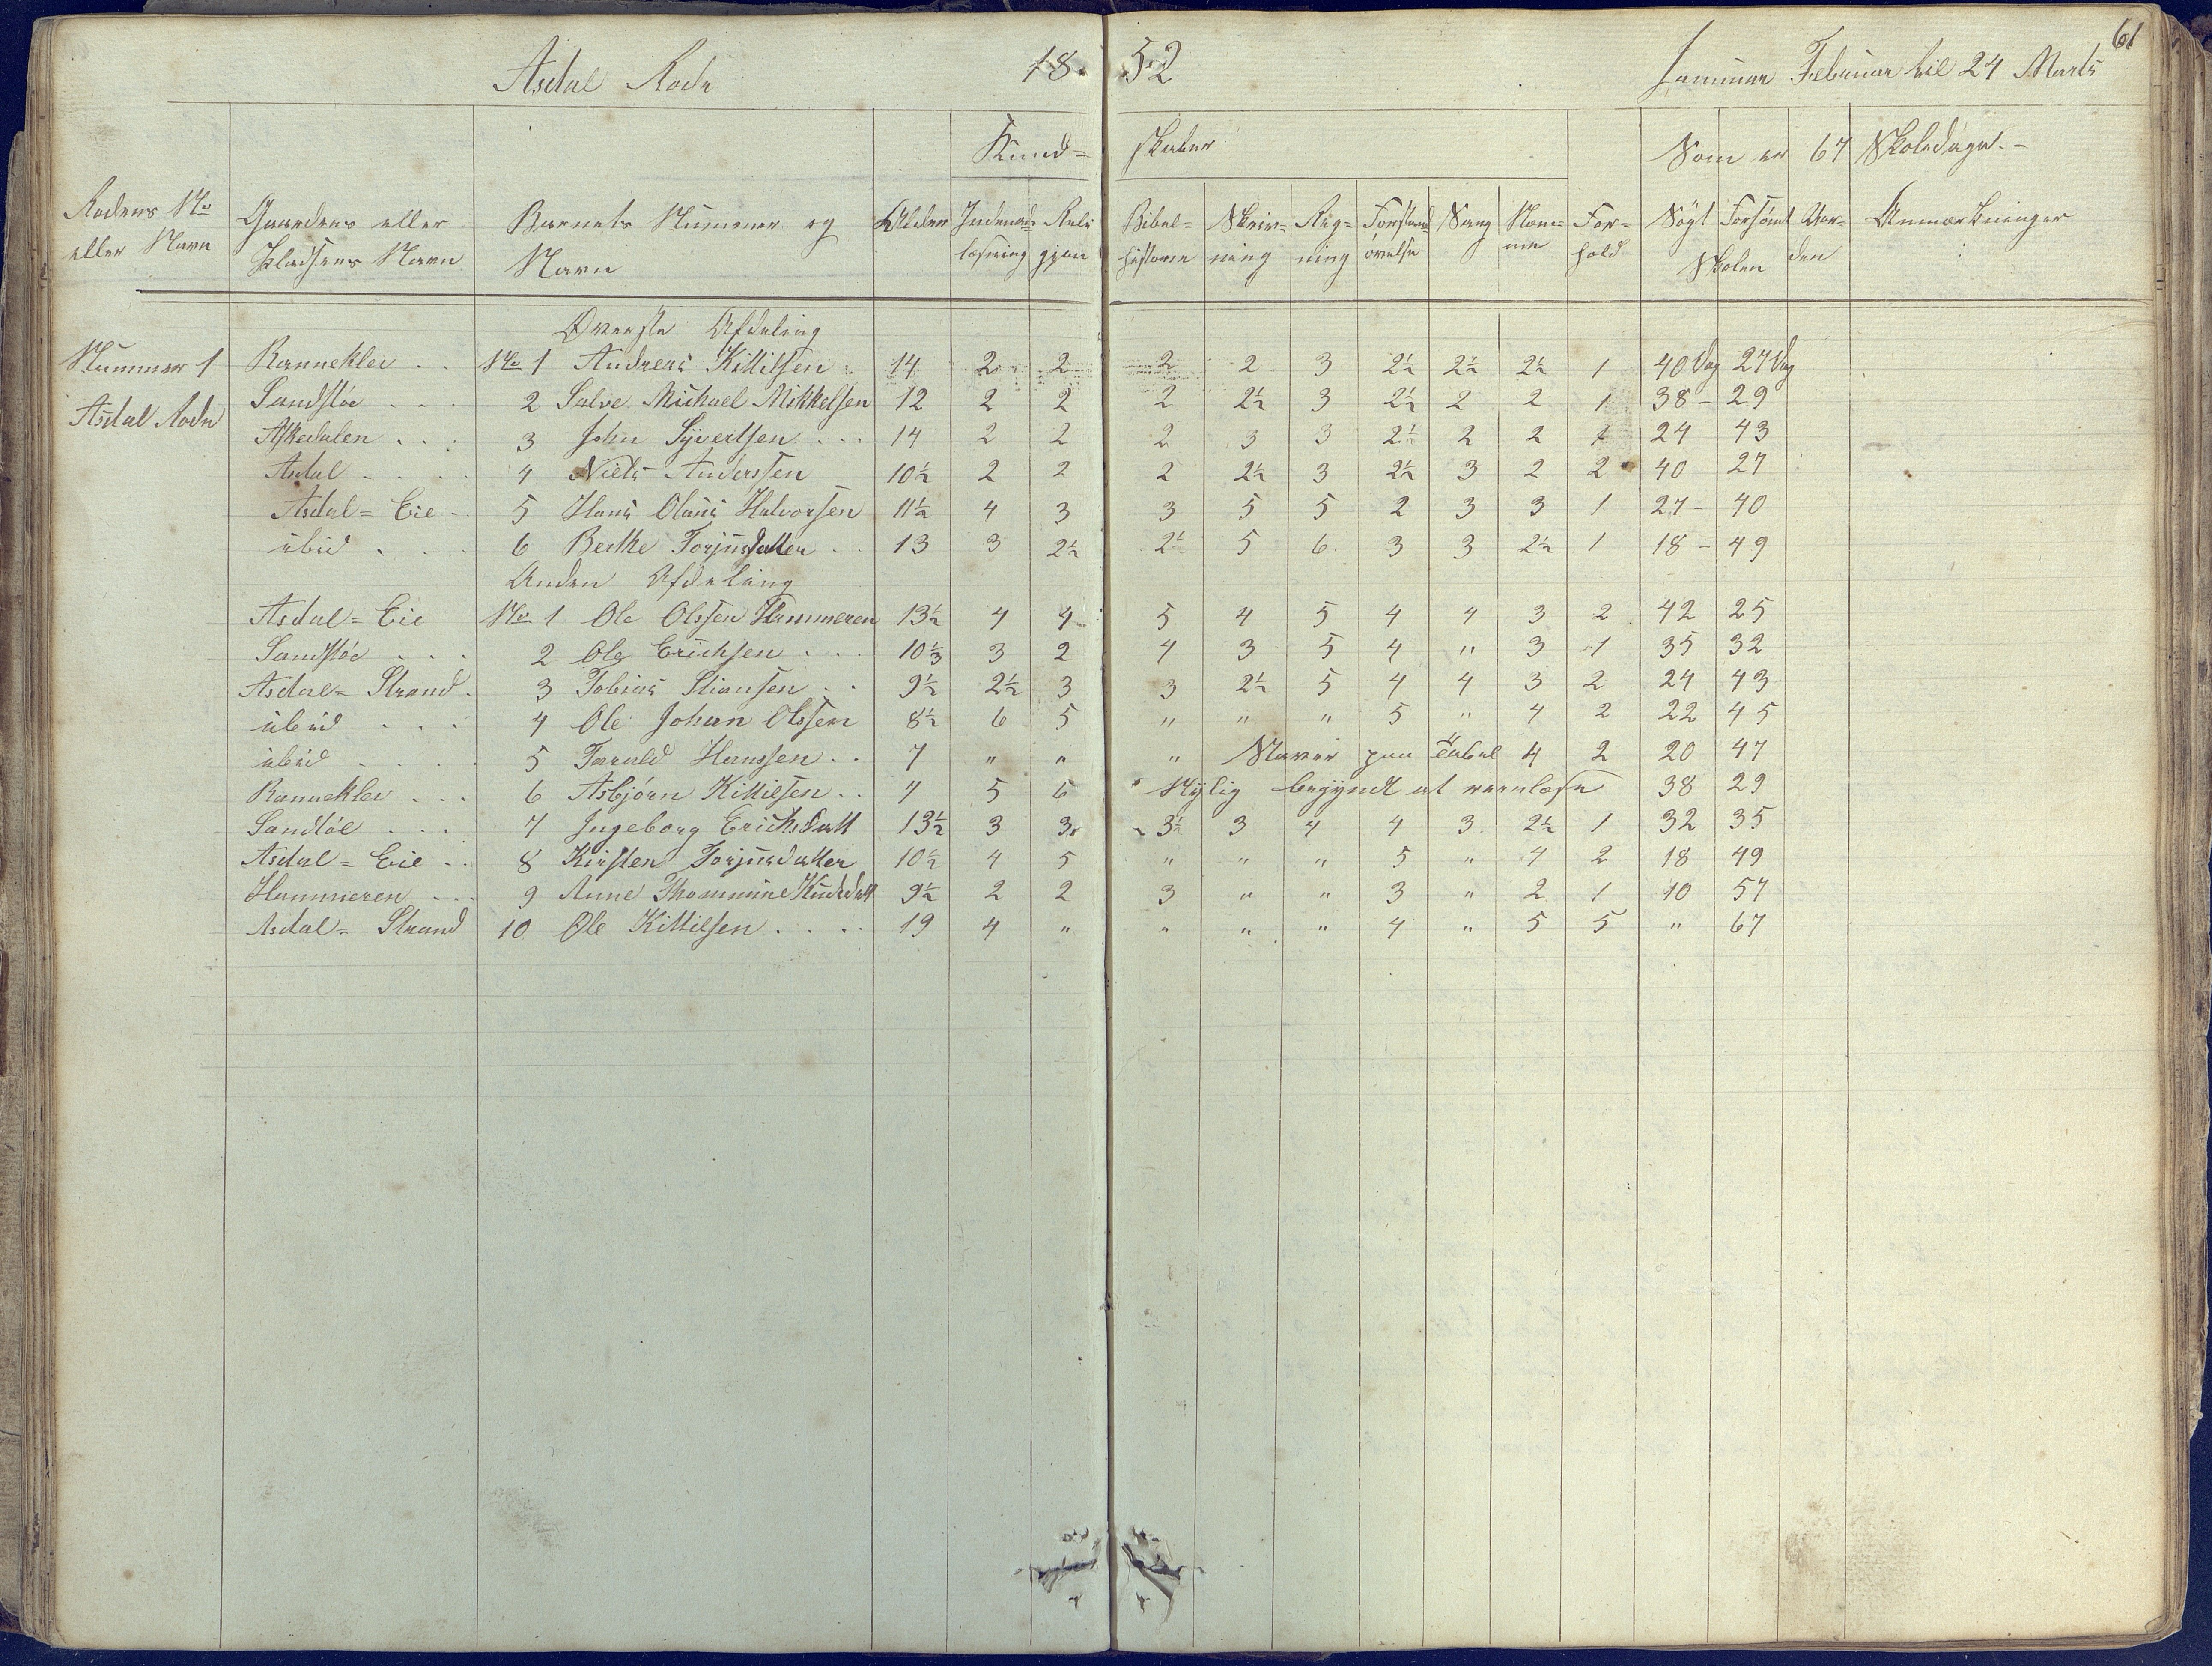 61
Asdal Rode 18 52 Januar Februar til 24 Marts
Kund= skaber Som er 67 Skoledage. -
Rodens No eller Navn | Gaardens eller Pladsens Navn | Barnets Nummer og Navn | Alder | Indenadlæsning | Religion | Bibelhistorie | Skrivning | Regning | Forstandsøvelse | Sang | Nemme | Forhold | Søgt Skolen | Forsømt | Orden | Anmærkninger
Øverste Afdeling
Nummer 1 Ranneklev . . No 1 Andreas Kittilsen . 14 2 2 2 2 3 2½ 2½ 2½ 1 40 Dag 27 Dag
Asdal Rode Sandstøe . . . 2 Salve Michael Mikkelsen 12 2 2 2 2½ 3 2½ 2 2 1 38 - 29
Askedalen . . . 3 John Syvertsen . . . 14 2 2 2 3 3 2½ 2 2 1 24 43
Asdal . . . . 4 Niels Anderssen 10½ 2 2 2 2½ 3 2½ 3 2 2 40 27
Asdal = Eie . . 5 Hans Olaus Halvorsen 11½ 4 3 3 5 5 2 3 3 1 27 - 40
ibid . . . 6 Berthe Torjusdatter . . 13 3 2½ 2½ 5 6. 3 3 2½ 1 18 - 49
Anden Afdeling
Asdal = Eie No 1 Ole Olssen Hammeren 13½ 4 4 5 4 5 4 4 3 2 42 25
Sandstøe . . . 2 Ole Erichsen . . . 10⅓ 3 2 4 3 5 4 " 3 1 35 32
Asdal = Strand . 3 Tobias Stiansen . . 9½ 2½ 3 3 2½ 5 4 4 3 2 24 43
ibid . . . 4 Ole Johan Olssen 8½ 6 5 " " " 5 " 4 2 22 45
ibid . . . . 5 Tarald Hanssen . . 7 " " " Staver paa Tabel " 4 2 20 47
Ranneklev . . . 6 Asbjørn Kittilsen . . 7 5 6 Nylig begyndt at reenlæse 38 29
Sandtøe . . . 7 Ingeborg Erichsdatt 13½ 3 3 3½ 3 4 4 3 2½ 1 32 35
Asdal = Eie . . 8 Kirsten Torjusdatter 10½ 4 5 " " " 5 " 4 2 18 49
Hammeren . . . 9 Anne Thommine Knudsdatt 9½ 2 2 3 " " 3 " 2 1 10 57
Asdal = Strand 10 Ole Kittilsen . . . . 19 4 " " " " 4 " 5 5 " 67